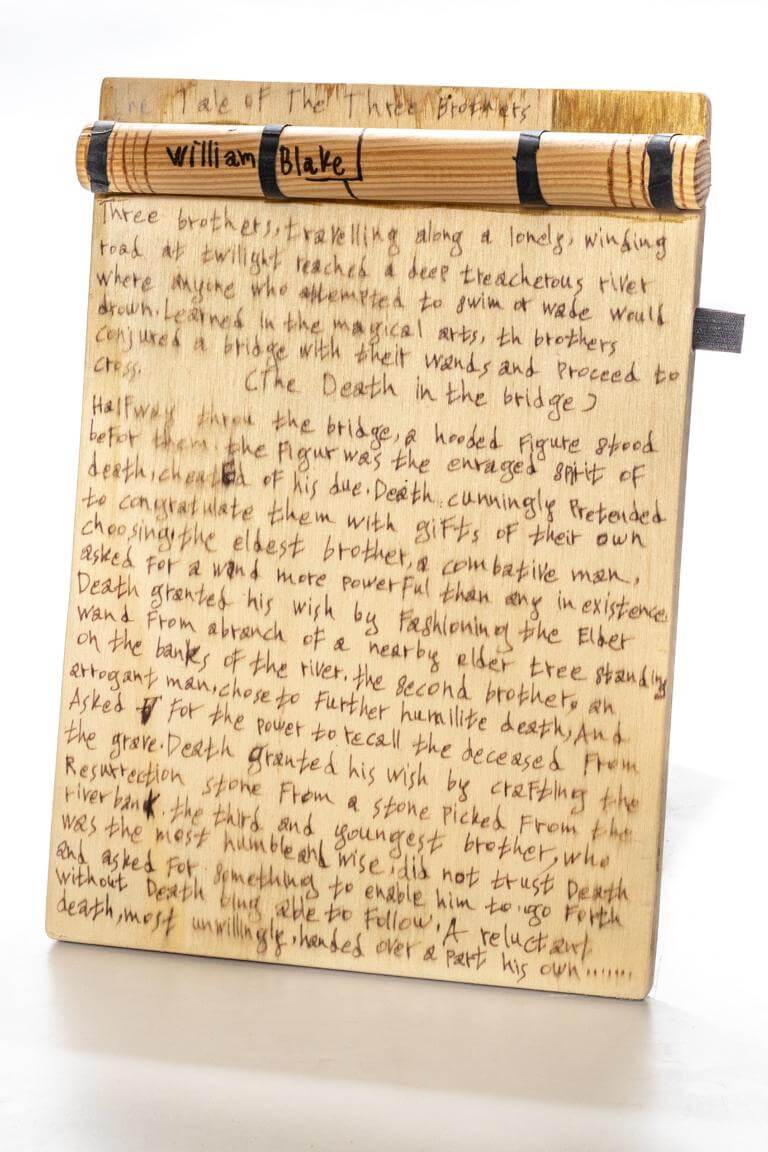 The Tale of The Three Brothers
William Blake
Three brothers, travelling along a lonely, winding
road at twilight reached a deep treacherous river
where anyone who attempted to swim or wade would
drown. Learned in the magical arts, th brothers
conjured a bridge with their wands and proceed to
cross. (The Death in the bridge)
Halfway throu the bridge, a hooded Figure stood
befor them. the Figur was the enraged spirit of
death, cheatEd of his due. Death cunningly Pretended
to congratulate them with giFts of their own
choosing. the eldest brother, a combative man,
asked For a wand more powerFul than any in existence
Death granted his wish by Fashioning the Elder
wand From abranch of a nearby elder tree standing
on the banks of the river. the second brother, an
arrogant man, chose to Further humilite death, And
Asked For the power to recall the deceased From
the grave. Death granted his wish by craFting the
Resurrection stone From a stone picked From the
river bank. the third and youngest brother, who
was the most humble and wise, did not trust Death
and asked For something to enable him to go Forth
without Death bing able to Follow. A reluctant
death, most unwillingly, handed over a part his own .......